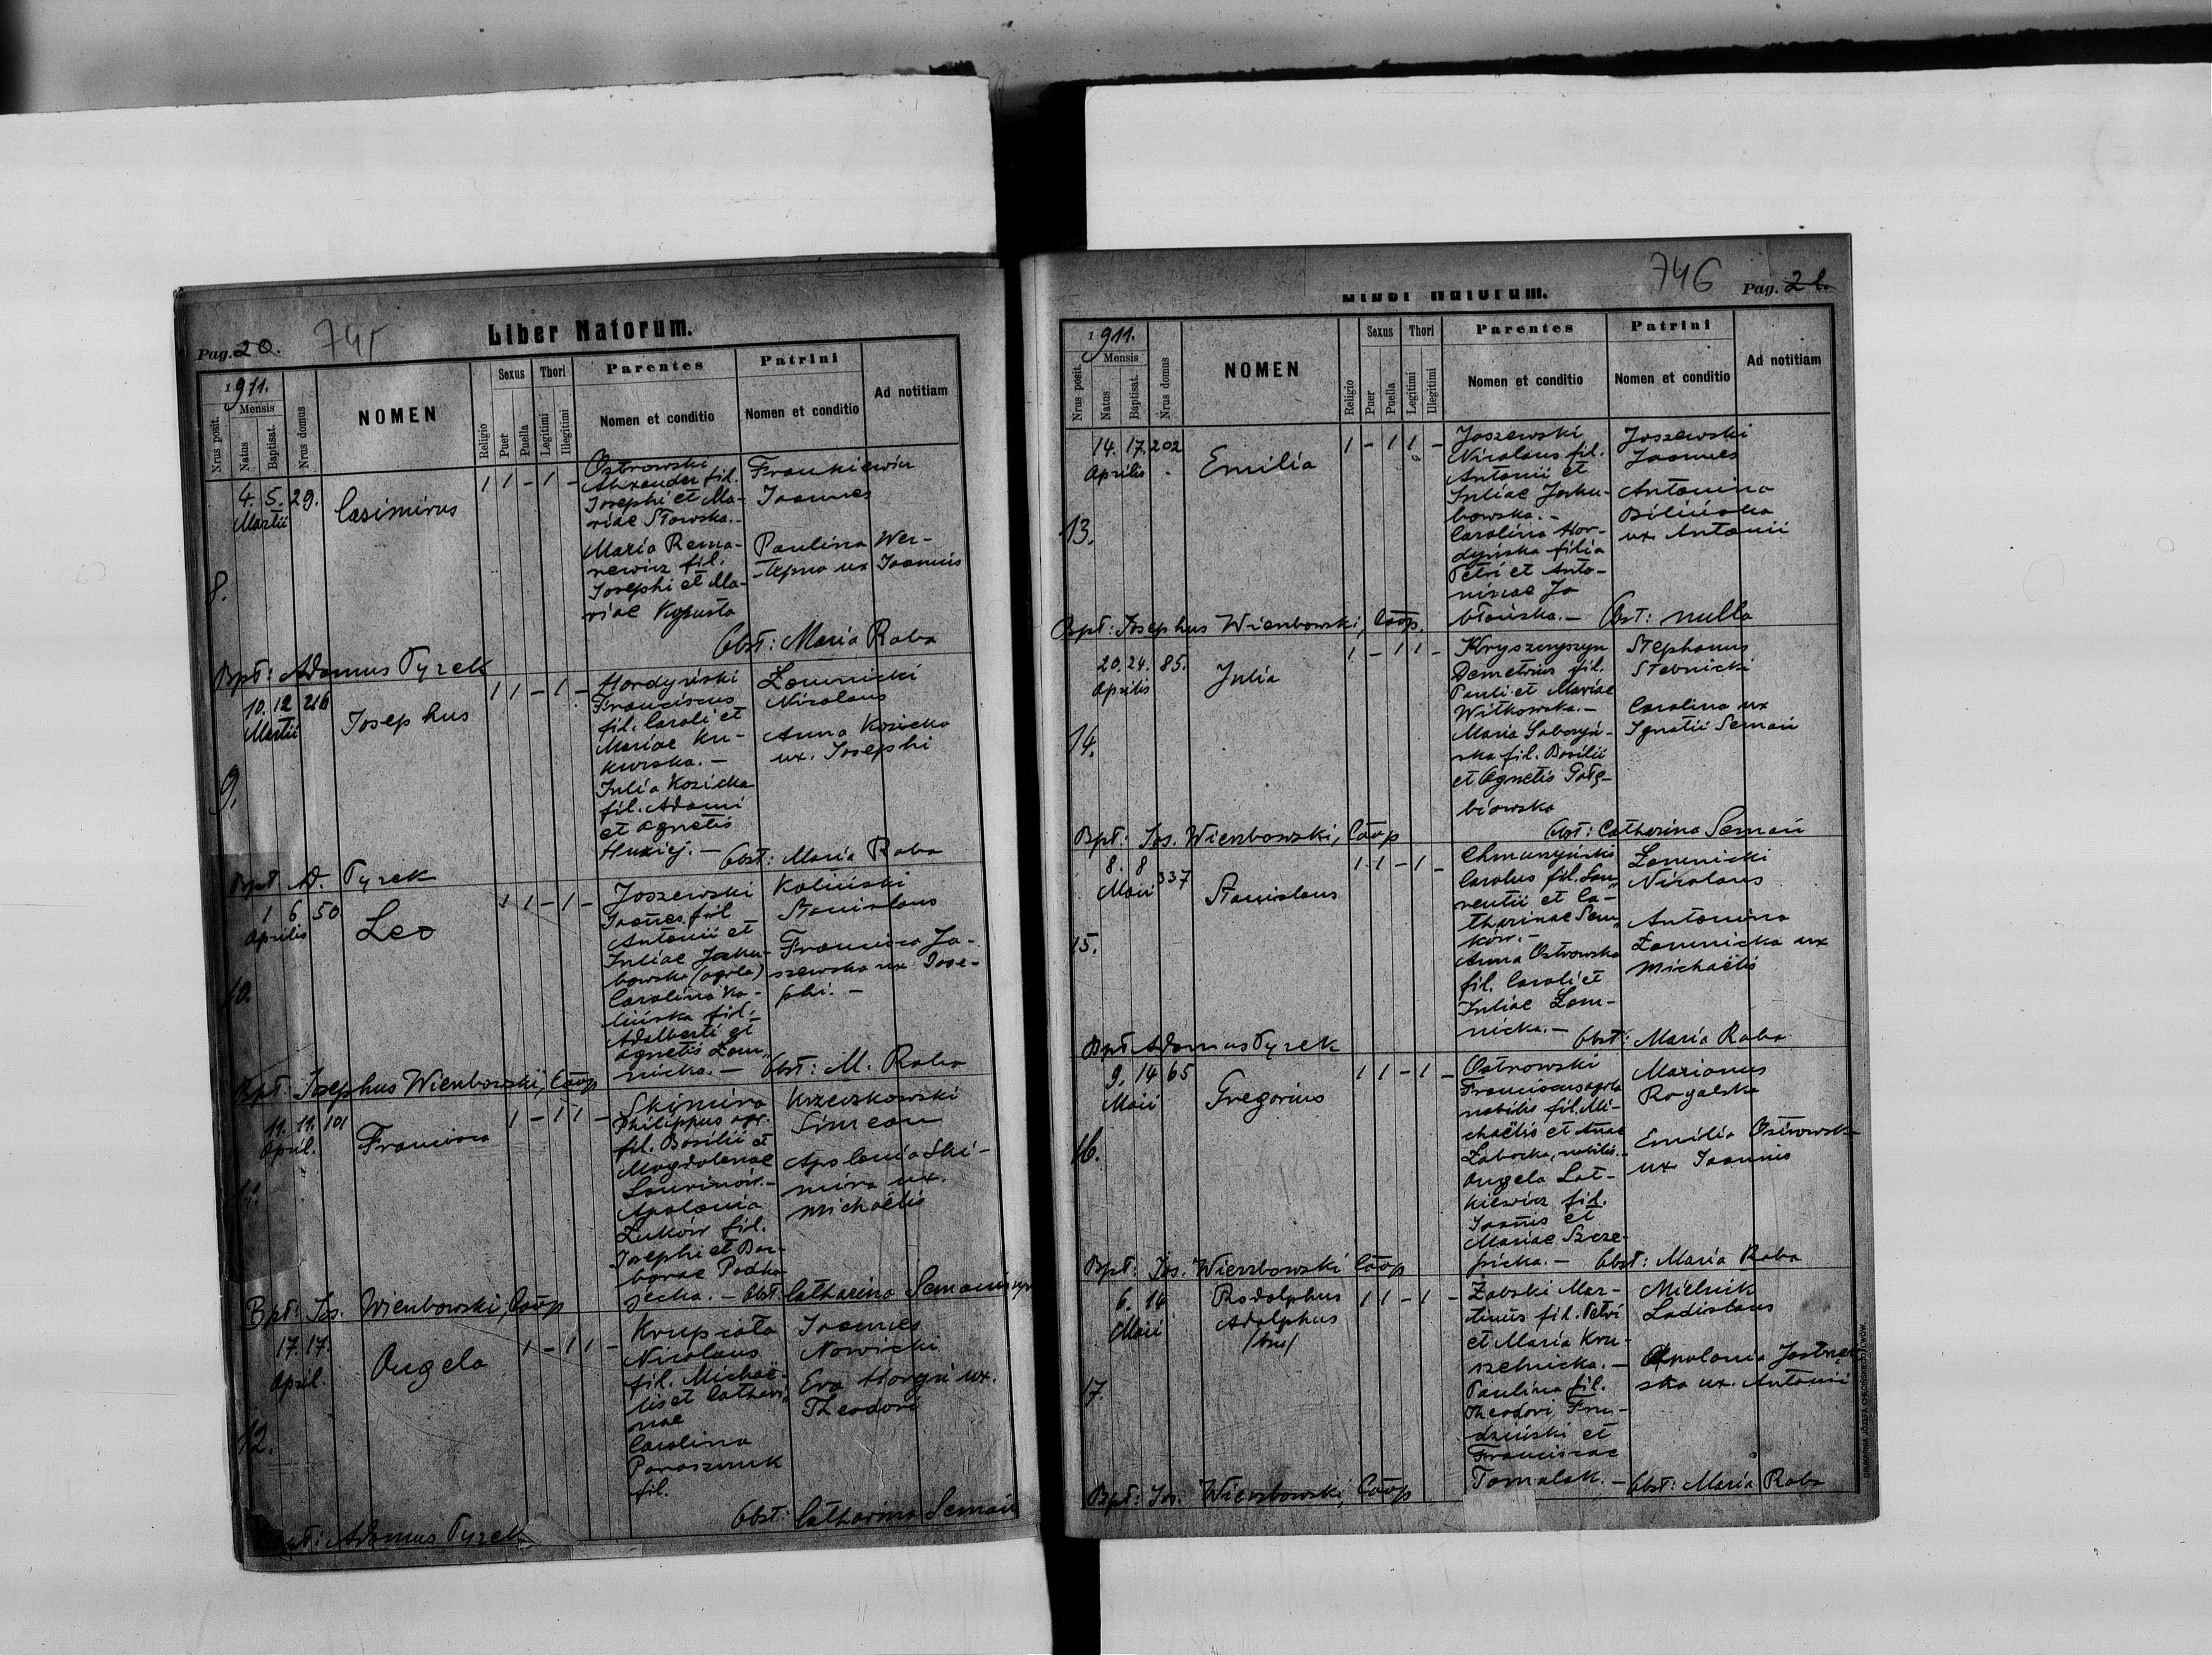 Pag. 20.
745
Liber Natorum.
1911.
Nrus posit.
Mensis
Natus
Baptisat.
Nrus domus
NOMEN
Religio
Sexus
Puer
Puella
Thori
Legitimi
Illegitimi
Parentes
Nomen et conditio
Patrini
Nomen et conditio
Ad notitiam
8.
4. 5. 29.
Martii
Casimirus
1 1 - 1 -
Ostrowski
Alexander fil.
Josephi et Ma-
riae Stowska.-
Maria Rema-
newicz fil.
Josephi et Ma-
riae Kapusta
Frankiewicz
Joannes
Paulina Wer-
-tepna ux Joannis
Obst: Maria Raba
Bpt: Adamus Tyrek
9.
10. 12 216
Martii
Josephus
1 1 - 1 -
Hordyński
Franciscus
fil. Caroli et
Mariae Ku-
kurska. -
Julia Kozicka
fil. Adami
et Agnetis
Huziej. -
Łomnicki
Nicolaus
Anna Kozicka
ux. Josephi
Obst: Maria Raba
Bpt. A. Tyrek
10.
1 6 50
Aprilis
Leo
1 1 - 1 -
Joszewski
Joañes fil
Antonii et
Juliae Jaku-
bowska (agrla)
Carolina Ka-
lińska fil.
Adalberti et
Agnetis Łom-
nicka. -
Kaliński
Stanislaus
Francisca Jo-
szewska ux Jose-
phi. -
Obst: M. Raba
Bpt. Josephus Wierzbowski, Coop
11.
11. 11. 101
April.
Francisca
1 - 1 1 -
Skimira
Philippus agr.
fil. Basilii et
Magdalenae
Laurinów. -
Apolonia
Żuków fil.
Josephi et Bar-
barae Podha
jecka. -
Krzeczkowski
Simeon
Apolonia Ski-
mira ux.
Michaëlis
Obst. Catharina Semań
Bpt: Jos. Wierzbowski, Coop
12.
17. 17.
April.
Angela
1 - 1 1 -
Krupiata
Nicolaus
fil. Michaë-
lis et Cathari-
nae
Carolina
Paraszczuk
fil.
Joannes
Nowicki
Eva Horyń ux.
Theodori
Obst: Catharina Semań
Bapt: Adamus Tyrek
746
Pag. 21.
Liber Natorum.
1911.
Nrus posit.
Mensis
Natus
Baptisat.
Nrus domus
NOMEN
Religio
Sexus
Puer
Puella
Thori
Legitimi
Illegitimi
Parentes
Nomen et conditio
Patrini
Nomen et conditio
Ad notitiam
13.
14. 17. 202
Aprilis
Emilia
1 - 1 1 -
Joszewski
Nicolaus fil.
Antonii et
Juliae Jaku-
bowska. -
Carolina Hor-
dyńska filia
Petri et Anto-
ninae Ja
błońska. -
Joszewski
Joannes
Antonina
Bilińska
ux Antonii
Obst: nulla
Bpt: Josephus Wierzbowski, Coop.
14.
20. 24. 85.
Aprilis
Julia
1 - 1 1 -
Kryszczyszyn
Demetrius fil.
Pauli et Mariae
Witkowska. -
Maria Saboryń-
ska fil. Basilii
et Agnetis Gołę-
biowska
Stephanus
Stebnicki
Carolina ux
Ignatii Semań
Obst: Catharina Semań
Bpt: Jos. Wierzbowski, Coop
15.
8. 8 337
Maii
Stanislaus
1 1 - 1 -
Chmurzyński
Carolus fil. Lau-
rentii et Ca-
tharinae Sen-
ków. -
Anna Ostrowska
fil. Caroli et
Juliae Łom-
nicka. -
Łomnicki
Nicolaus
Antonina
Łomnicka ux
Michaëlis
Obst: Maria Raba
Bpt Adamus Tyrek
16.
9. 14 65
Maii
Gregorius
1 1 - 1 -
Ostrowski
Franciscus agrla
nobilis fil. Mi-
chaëlis et Añae
Zabocka, nobilis. -
Angela Lat-
kiewicz fil.
Joañis et
Mariae Szcze-
picka. -
Marianus
Rogalska
Emilia Ostrowska
ux Joannis
Obst: Maria Raba
Bpt: Jos. Wierzbowski Coop
17.
6. 14
Maii
Rodolphus
Adolphus
/bin/
1 1 - 1 -
Żabski Mar-
tinus fil. Petri
et Maria Kru-
szelnicka. -
Paulina fil.
Theodori Fru-
dziński et
Franciscae
Tomalak. -
Mielnik
Ladislaus
Apolonia Jastrzęb
ska ux. Antonii
Obst: Maria Raba
Bpt: Jos. Wierzbowski, Coop
DRUKARNIA JÓZEFA CHĘCIŃSKIEGO / LWÓW.